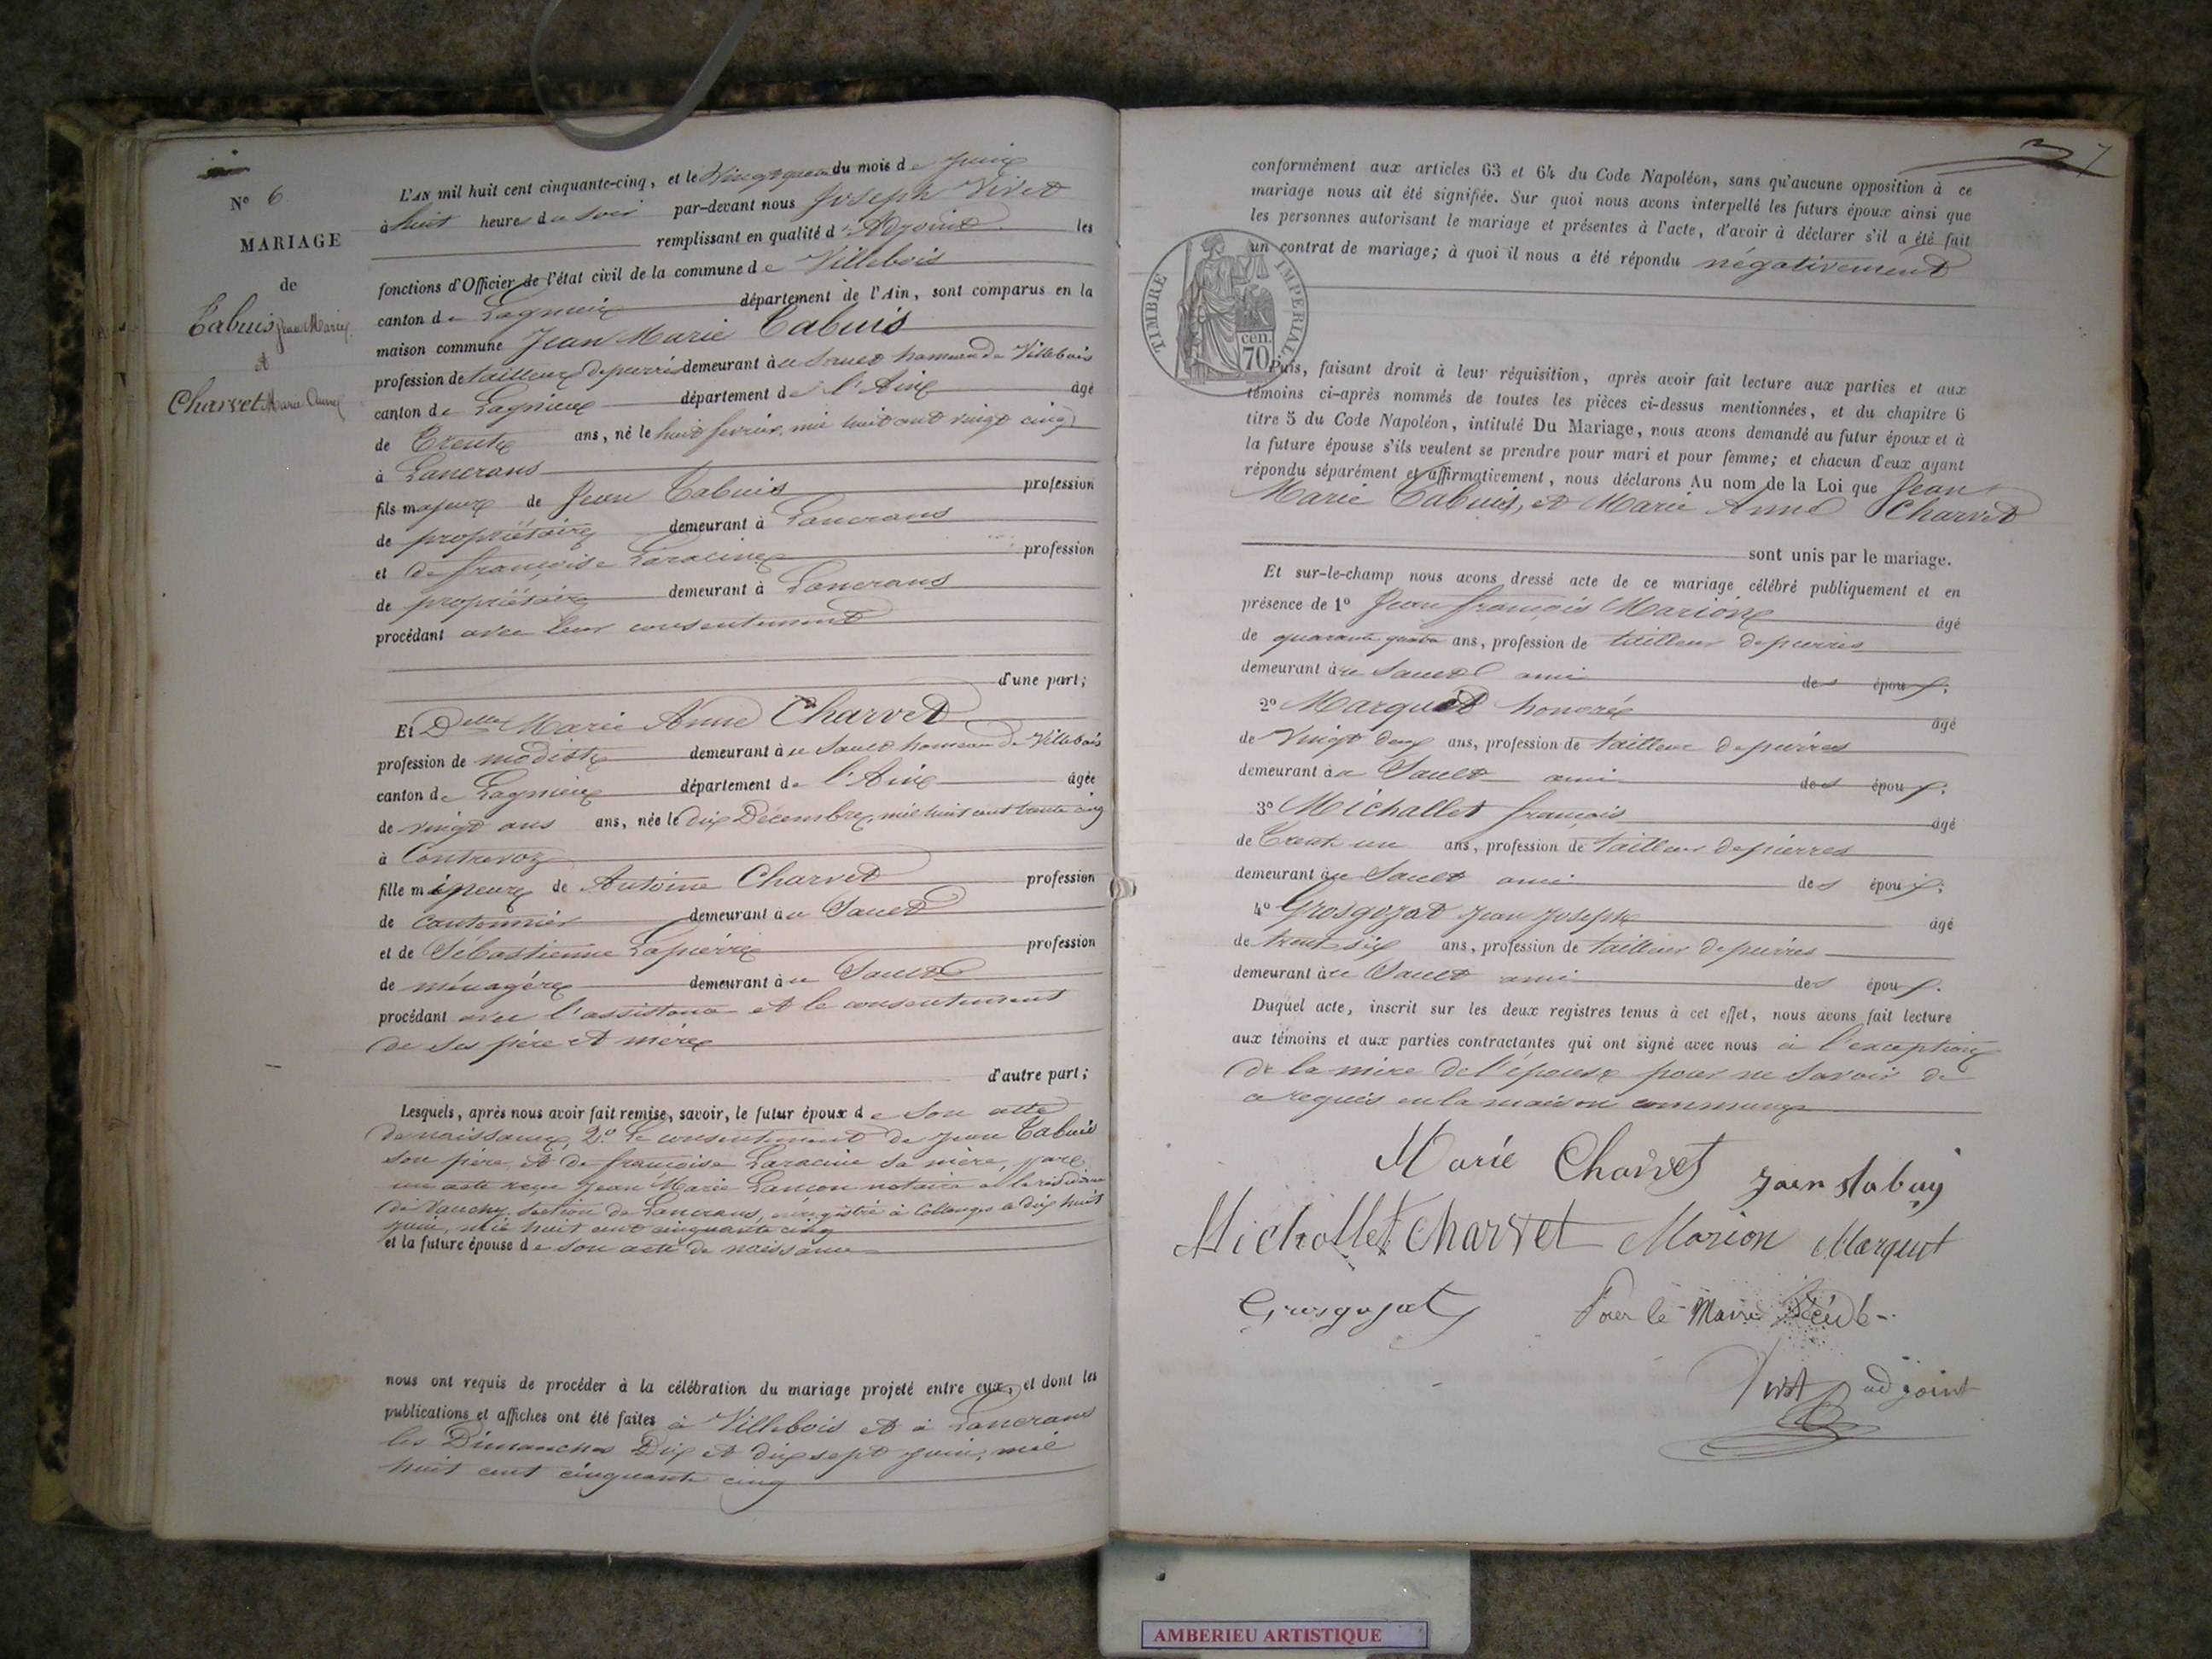 N° 6
MARIAGE
de
Tabuis Jean Marie
et
Charvet Marie Anne
L'AN mil huit cent cinquante-cinq, et le vingt quatre du mois de Juin
à huit heures du soir par-devant nous Joseph Vivet
remplissant en qualité d'Adjoint les
fonctions d'Officier de l'état civil de la commune de Villebois
canton de Lagnieu département de l'Ain, sont comparus en la
maison commune Jean Marie Tabuis
profession de tailleur de pierres demeurant au Sault hameau de Villebois
canton de Lagnieu département de l'Ain âgé
de Trente ans, né le huit fevrier, mil huit cent vingt cinq
à Lancrans
fils majeur de Jean Tabuis profession
de propriétaire demeurant à Lancrans
et de françoise Laracine profession
de propriétaire demeurant à Lancrans
procédant avec leur consentement
d'une part;
Et Delle Marie Anne Charvet
profession de modiste demeurant au Sault hameau de Villebois
canton de Lagnieu département de l'Ain âgée
de vingt ans ans, née le dix Décembre, mil huit cent trente cinq
à Contrevoz
fille mineure de Antoine Charvet profession
de cantonnier demeurant au Sault
et de Sébastienne Lapierre profession
de ménagère demeurant au Sault
procédant avec l'assistance et le consentement
de ses père et mère
d'autre part;
Lesquels, après nous avoir fait remise, savoir, le futur époux de son acte
de naissance, 2.° le consentement de Jean Tabuis
son père, et de françoise Laracine sa mère, par
un acte reçu Jean Marie Lançon notaire à la résidence
de Vanchy, section de Lancrans, enregistré à Collonges le dix huit
juin, mil huit cent cinquante cinq
et la future épouse de son acte de naissance
nous ont requis de procéder à la célébration du mariage projeté entre eux, et dont les
publications et affiches ont été faites à Villebois et à Lancrans
les Dimanches Dix et dix sept juin, mil
huit cent cinquante cinq
37
conformément aux articles 63 et 64 du Code Napoléon, sans qu'aucune opposition à ce
mariage nous ait été signifiée. Sur quoi nous avons interpellé les futurs époux ainsi que
les personnes autorisant le mariage et présentes à l'acte, d'avoir à déclarer s'il a été fait
un contrat de mariage; à quoi il nous a été répondu négativement
TIMBRE IMPERIAL.
70 cen.
Puis, faisant droit à leur réquisition, après avoir fait lecture aux parties et aux
témoins ci-après nommés de toutes les pièces ci-dessus mentionnées, et du chapitre 6
titre 5 du Code Napoléon, intitulé Du Mariage, nous avons demandé au futur époux et à
la future épouse s'ils veulent se prendre pour mari et pour femme; et chacun d'eux ayant
répondu séparément et affirmativement, nous déclarons Au nom de la Loi que Jean
Marie Tabuis, et Marie Anne Charvet
sont unis par le mariage.
Et sur-le-champ nous avons dressé acte de ce mariage célébré publiquement et en
présence de 1° Jean françois Marion âgé
de quarante quatre ans, profession de tailleur de pierres
demeurant au Sault ami des époux;
2° Marquet honoré âgé
de Vingt deux ans, profession de tailleur de pierres
demeurant au Sault ami des époux;
3° Michallet françois âgé
de Trente un ans, profession de tailleur de pierres
demeurant au Sault ami des époux;
4° Grosgojat Jean Joseph âgé
de trente six ans, profession de tailleur de pierres
demeurant au Sault ami des époux.
Duquel acte, inscrit sur les deux registres tenus à cet effet, nous avons fait lecture
aux témoins et aux parties contractantes qui ont signé avec nous à l'exception
de la mère de l'épouse pour ne savoir de
ce requis en la maison commune
Marie Charvet Jean Tabuy
Michallet Charvet Marion Marquet
Grosgojat Pour le Maire Décédé
Vivet adjoint
AMBERIEU ARTISTIQUE